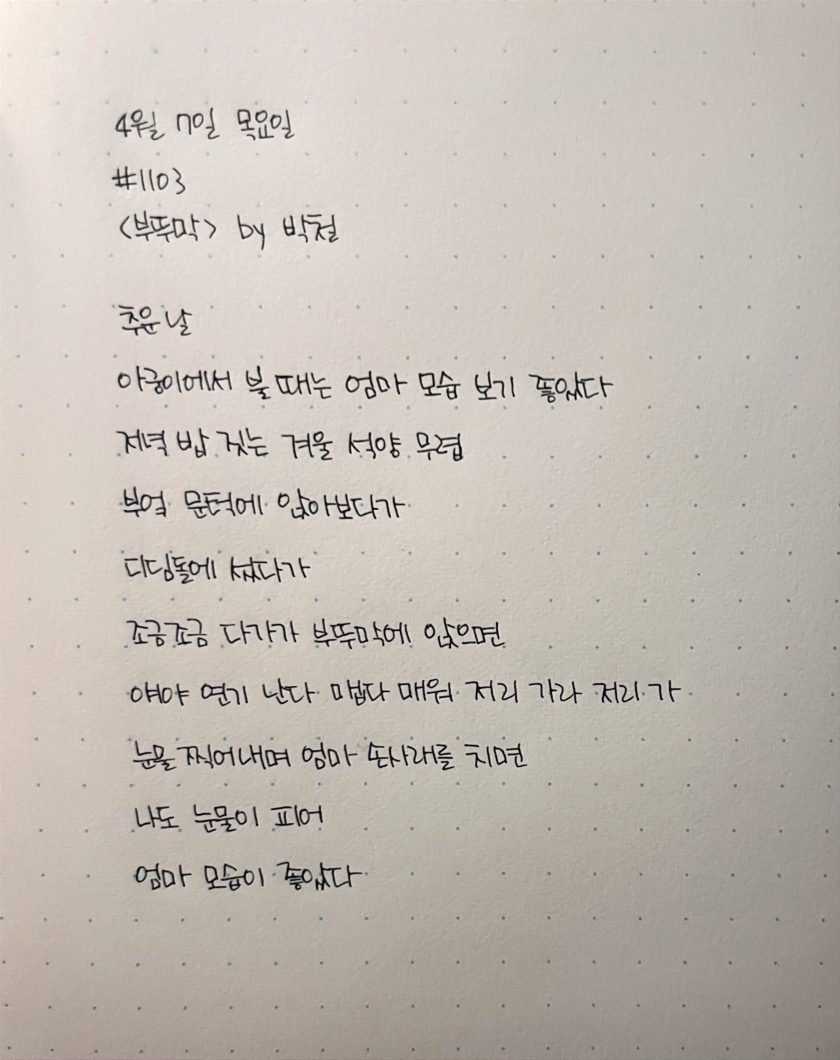 4월 7일 목요일
#1103
<부뚜막> by 박철
추운 날
아궁이에서 불 때는 엄마 모습 보기 좋았다
저녁 밥 짓는 겨울 석양 무렵
부엌 문턱에 앉아보다가
디딤돌에 섰다가
조금조금 다가가 부뚜막에 앉으면
얘야 연기 난다 맵다 매워 저리 가라 저리 가
눈물 찍어내며 엄마 손사래를 치면
나도 눈물이 피어
엄마 모습이 좋았다